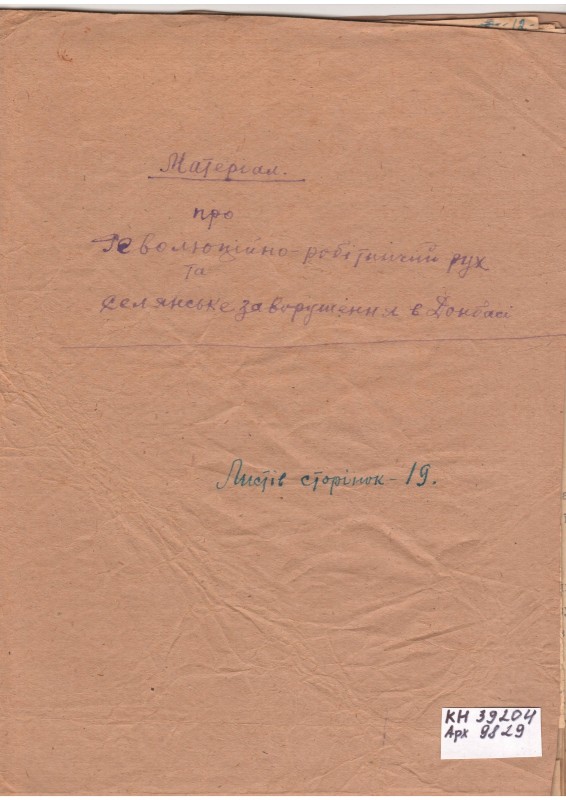 12
Матеріал.
про
Революційно-робітничий рух
та
селянське заворушення в Донбасі
Листів сторінок - 19.
КН 39204
Арх 9829